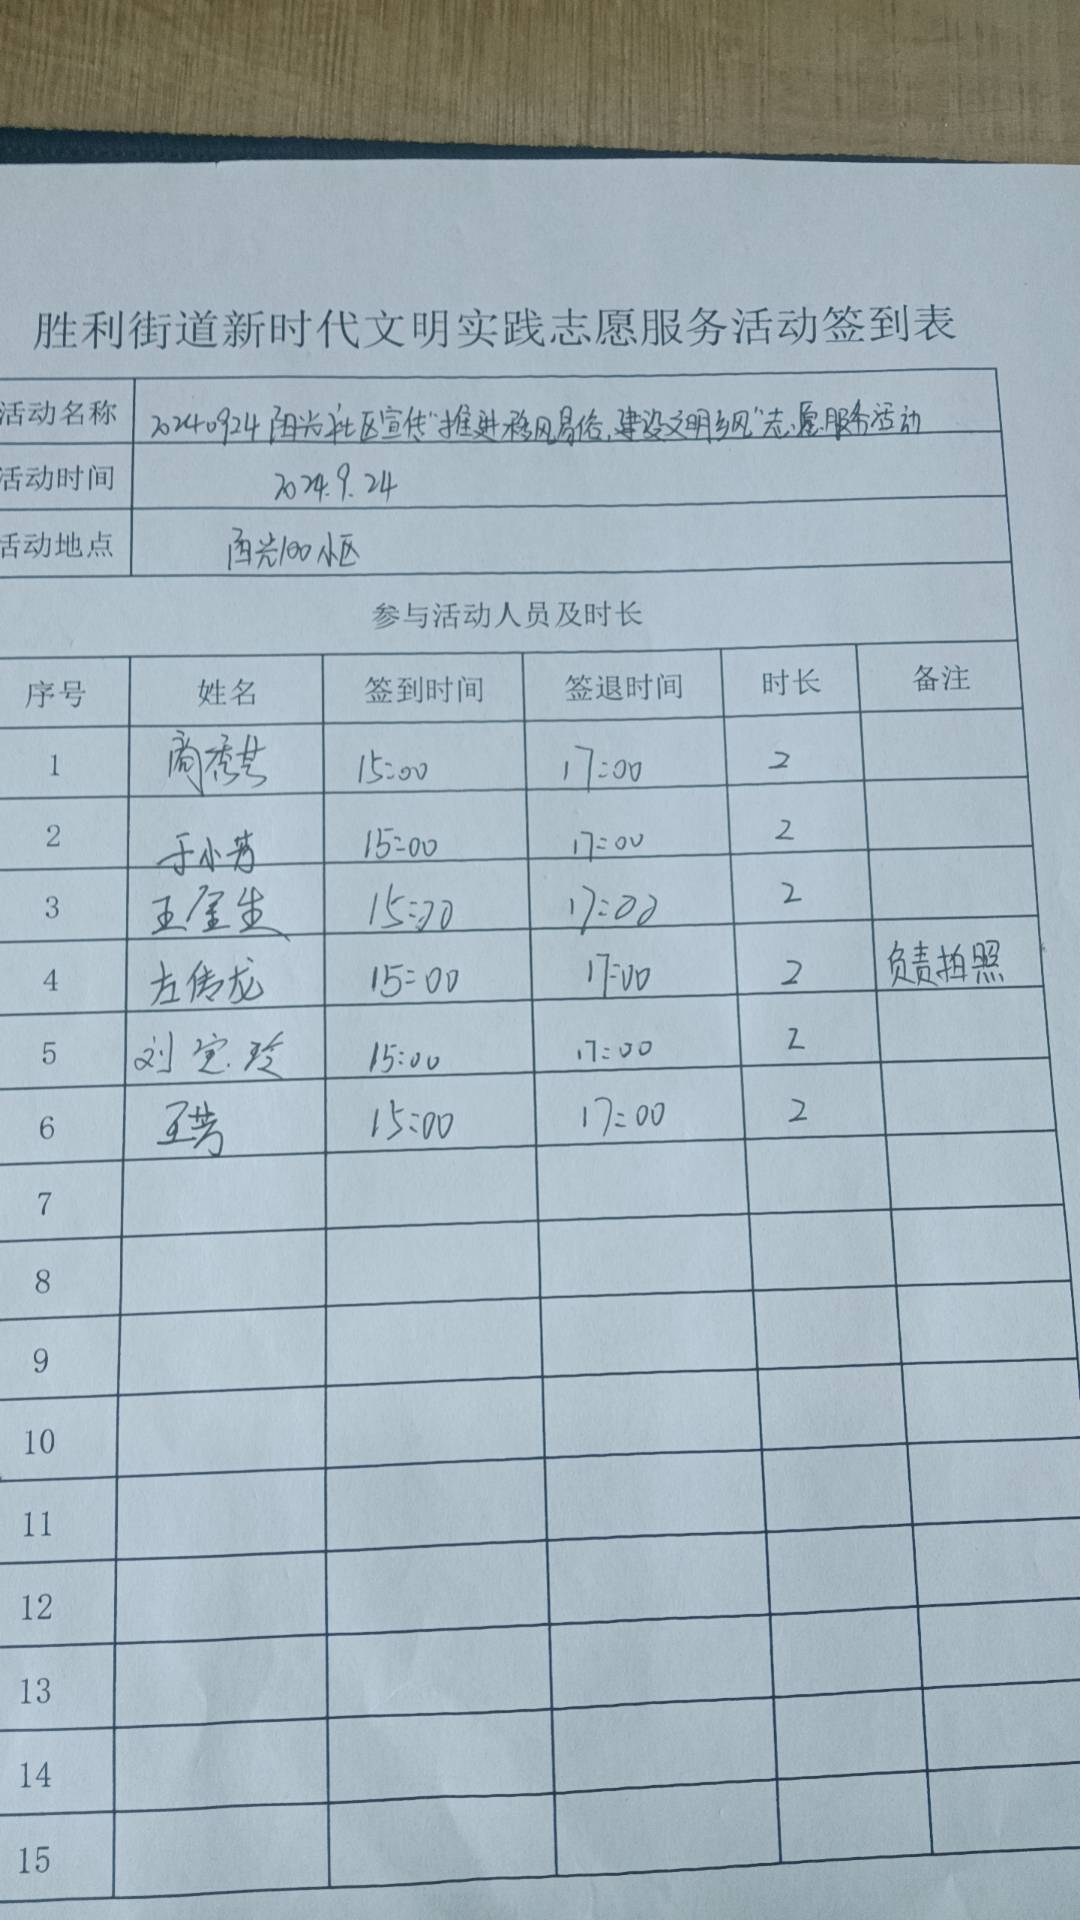 胜利街道新时代文明实践志愿服务活动签到表
活动名称 20240924阳光社区宣传"推进移风易俗,建设文明乡风"志愿服务活动
活动时间 2024.9.24
活动地点 阳光100小区
参与活动人员及时长
序号 姓名 签到时间 签退时间 时长 备注
1 15:00 17:00 2
2 于小芳 15:00 17:00 2
3 王金生 15:00 17:00 2
4 左传龙 15:00 17:00 2 负责拍照
5 刘宝玲 15:00 17:00 2
6 王芳 15:00 17:00 2
7
8
9
10
11
12
13
14
15